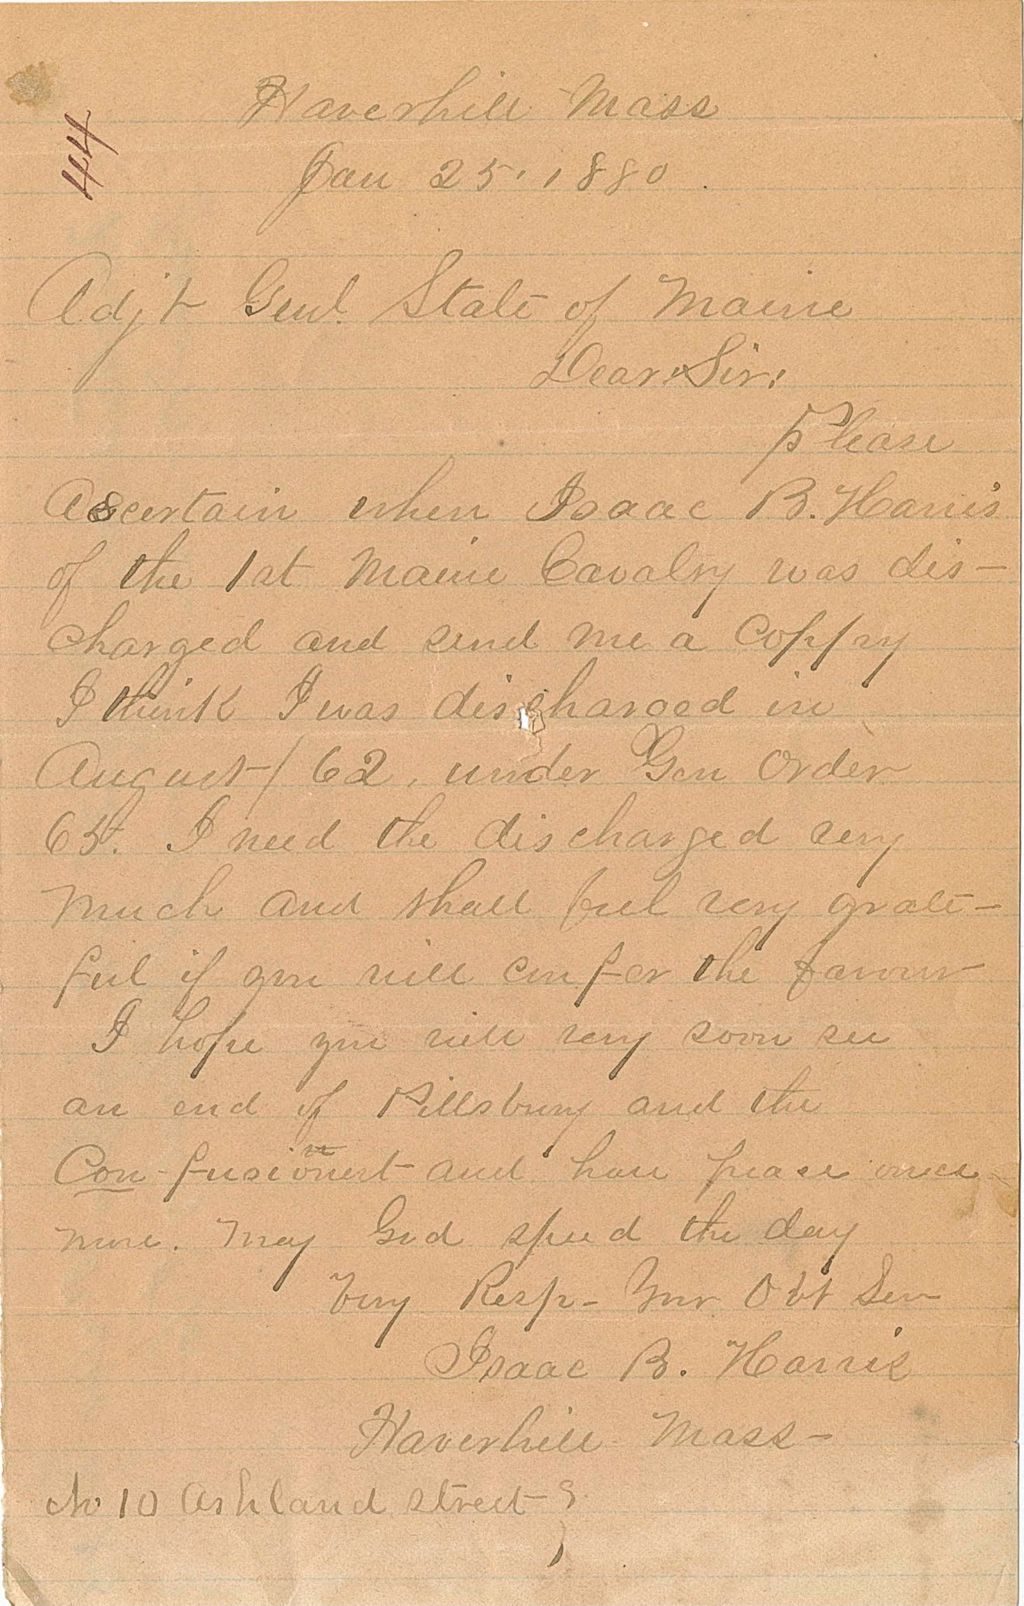 44
Haverhill Mass
Jan 25, 1880.
Adjt Genl. State of Maine
Dear Sir:
Please
Ascertain when Isaac B. Harris
of the 1st Maine Cavalry was dis-
charged and send me a Coppy
I think I was discharged in
August / 62, under Gen Order
65. I need the discharged very
Much and shall feel very grate-
ful if you will confer the favour
I hope you will very soon see
an end of Pillsbury and the
Con-fusionest and have peace once
more. May God speed the day
Very Resp- Your Obt Ser
Isaac B. Harris
Haverhill Mass-
No 10 Ashland street